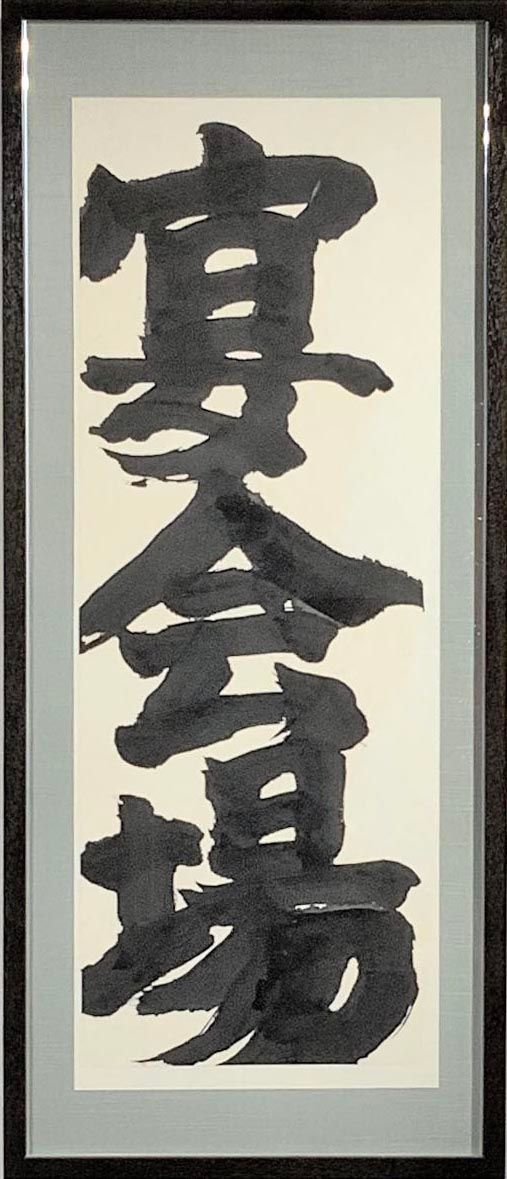 宴会場